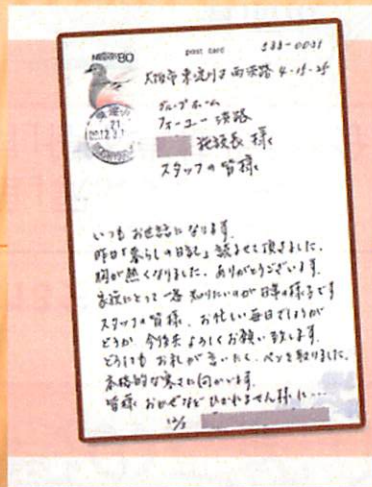 NIPPON 80
post card
533-0031
大阪市東淀川区西淡路 4-15-25
グループホーム
フォーユー淡路
施設長 様
スタッフの皆様
いつもお世話になります。
昨日「暮らしの日記」読ませて頂きました。
胸が熱くなりました。ありがとうございます。
家族にとって一番知りたいのが日常の様子です
スタッフの皆様、お忙しい毎日でしょうが
どうか、今後共よろしくお願い致します。
どうしてもお礼が言いたく、ペンを取りました。
本格的な寒さに向かいます。
皆様おかぜなどひかれません様に…
12/3